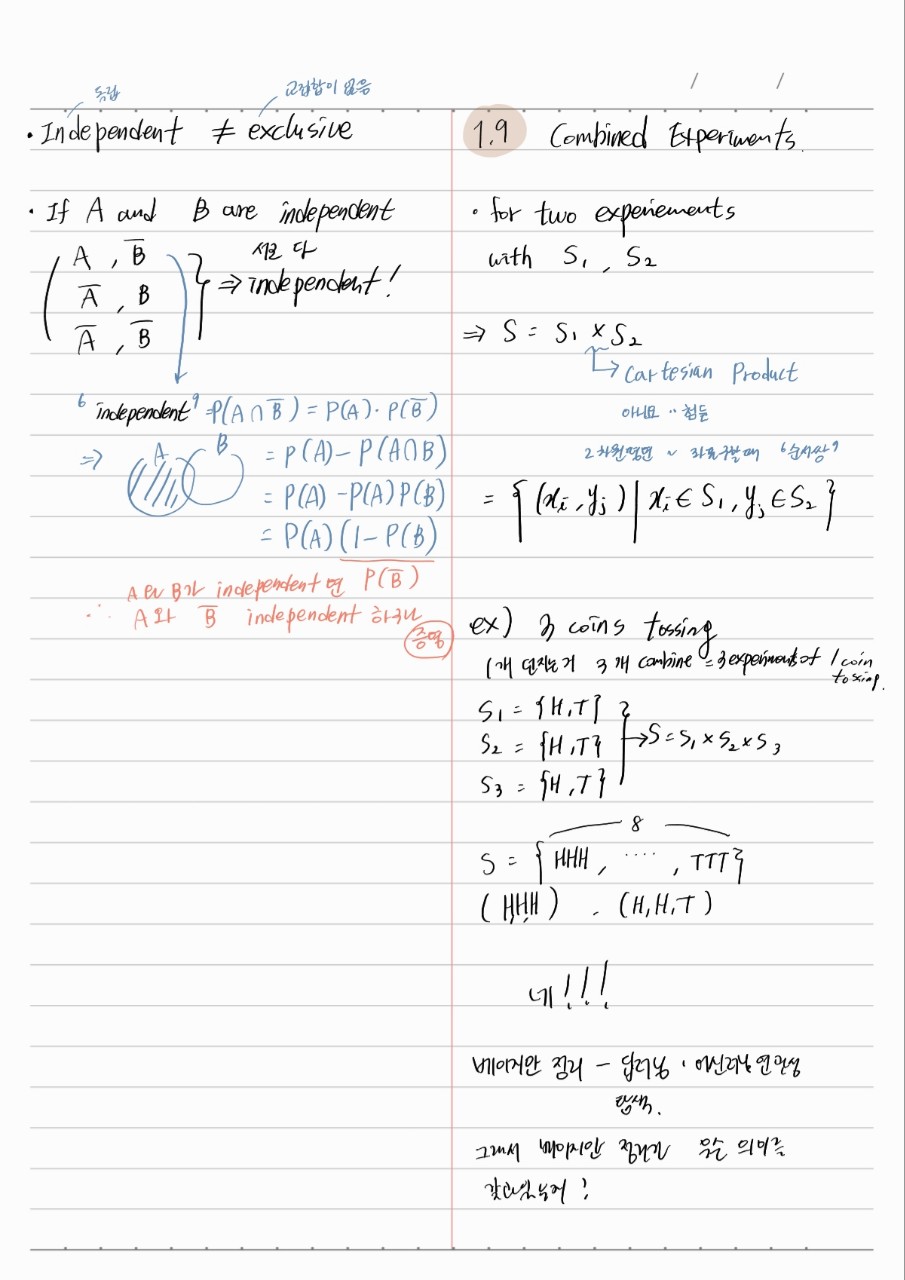 독립
교집합이 없음
· Independent ≠ exclusive
· If A and B are independent
A , B̅
A̅ , B
A̅ , B̅
서로 다
⇒ independent!
"independent" P(A∩B̅) = P(A)·P(B̅)
⇒ A B = P(A) - P(A∩B)
= P(A) - P(A)P(B)
= P(A)(1-P(B)
P(B̅)
A와 B가 independent면
∴ A와 B̅ independent 하구나
증명
1.9 Combined Experiments.
· for two experiements
with S₁, S₂
⇒ S = S₁ × S₂
↳ Cartesian Product
아니요 .. 힘듦
2차원평면 ~ 좌표구할때 "순서쌍"
= {(xᵢ, yⱼ) | xᵢ ∈ S₁, yⱼ ∈ S₂}
ex) 3 coins tossing
1개 던지는거 3개 combine = 3 experiments of 1 coin
tossing.
S₁ = {H,T}
S₂ = {H,T} → S = S₁ × S₂ × S₃
S₃ = {H,T}
8
S = {HHH, ····, TTT}
(H,H,H) . (H,H,T)
네!!!
베이지안 정리 - 딥러닝 · 머신러닝 연관성
탐색.
그래서 베이지안 정리가 무슨 의미를
갖고있는데?